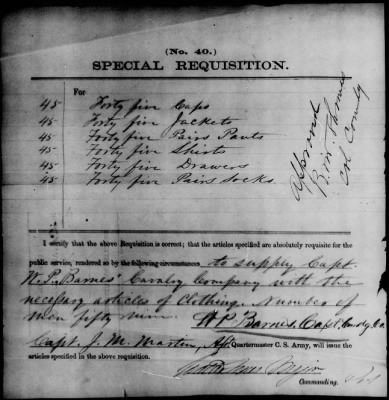 (No. 40.)
SPECIAL REQUISITION.
For
45 Forty five Caps
45 Forty five Jackets
45 Forty five Pairs Pants
45 Forty five Shirts
45 Forty five Drawers
45 Forty five Pairs Socks
Approved
Thomas
Col Comdg
I certify that the above Requisition is correct; that the articles specified are absolutely requisite for the
public service, rendered so by the following circumstances to supply Capt.
W. P. Barnes' Cavalry Company with the
necessary articles of Clothing. Number of
men fifty nine W P Barnes, Capt. Comdg Co.
Capt. J. M. Martin, Quartermaster C. S. Army, will issue the
articles specified in the above requisition.
Major
Commanding.